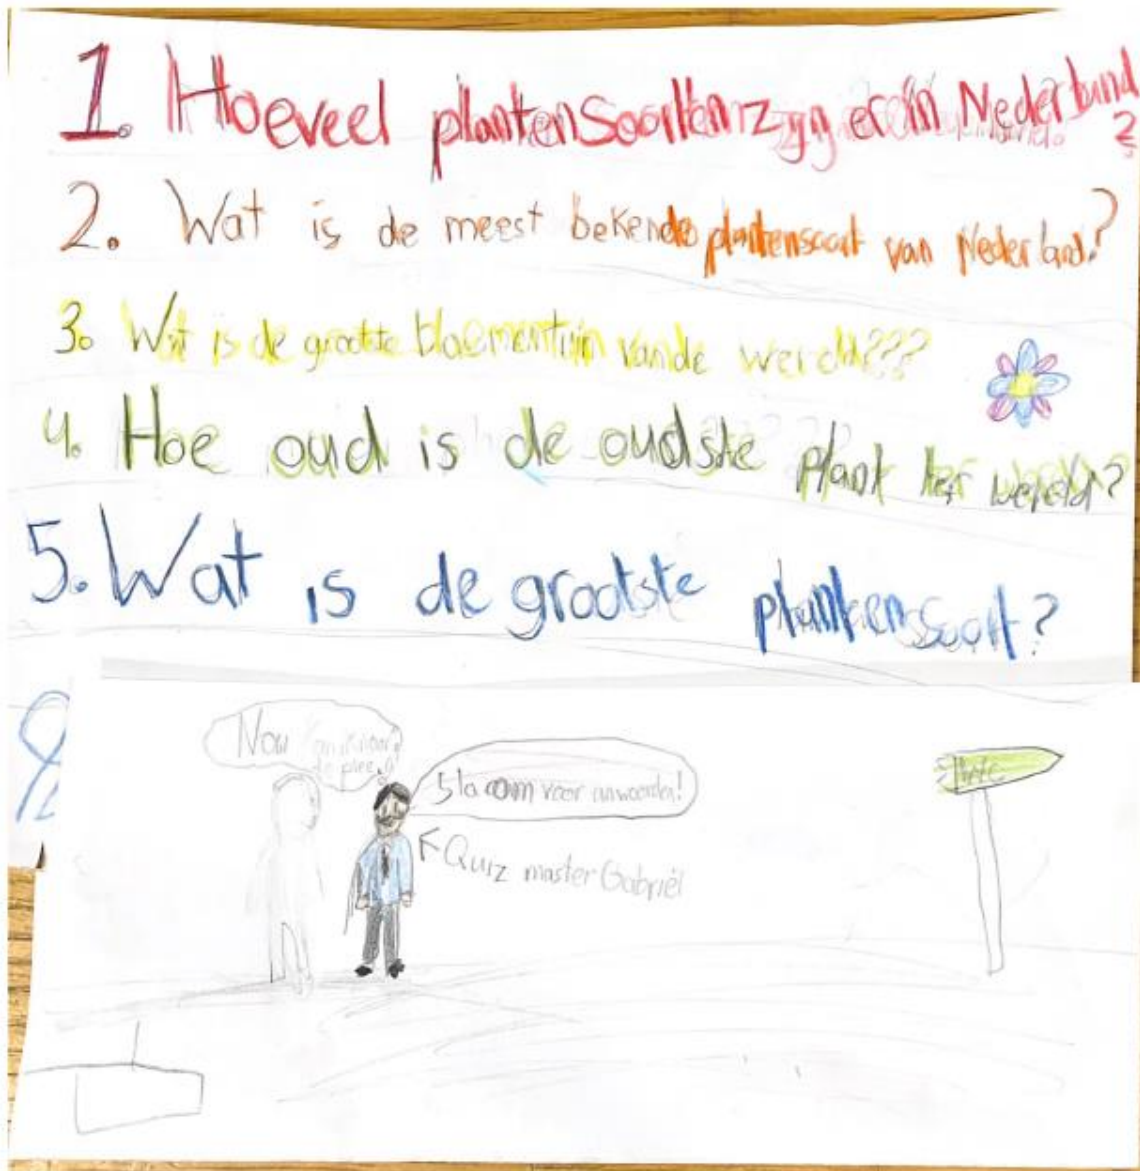 1. Hoeveel plantensoorten zijn er in Nederland?
2. Wat is de meest bekende plantensoort van Nederland?
3. Wat is de grootste bloementuin van de wereld???
4. Hoe oud is de oudste plant ter wereld?
5. Wat is de grootste plantensoort?
Nou kan ik naar
de plee
Sla om voor anwoorden!
Quiz master Gabriël
WC